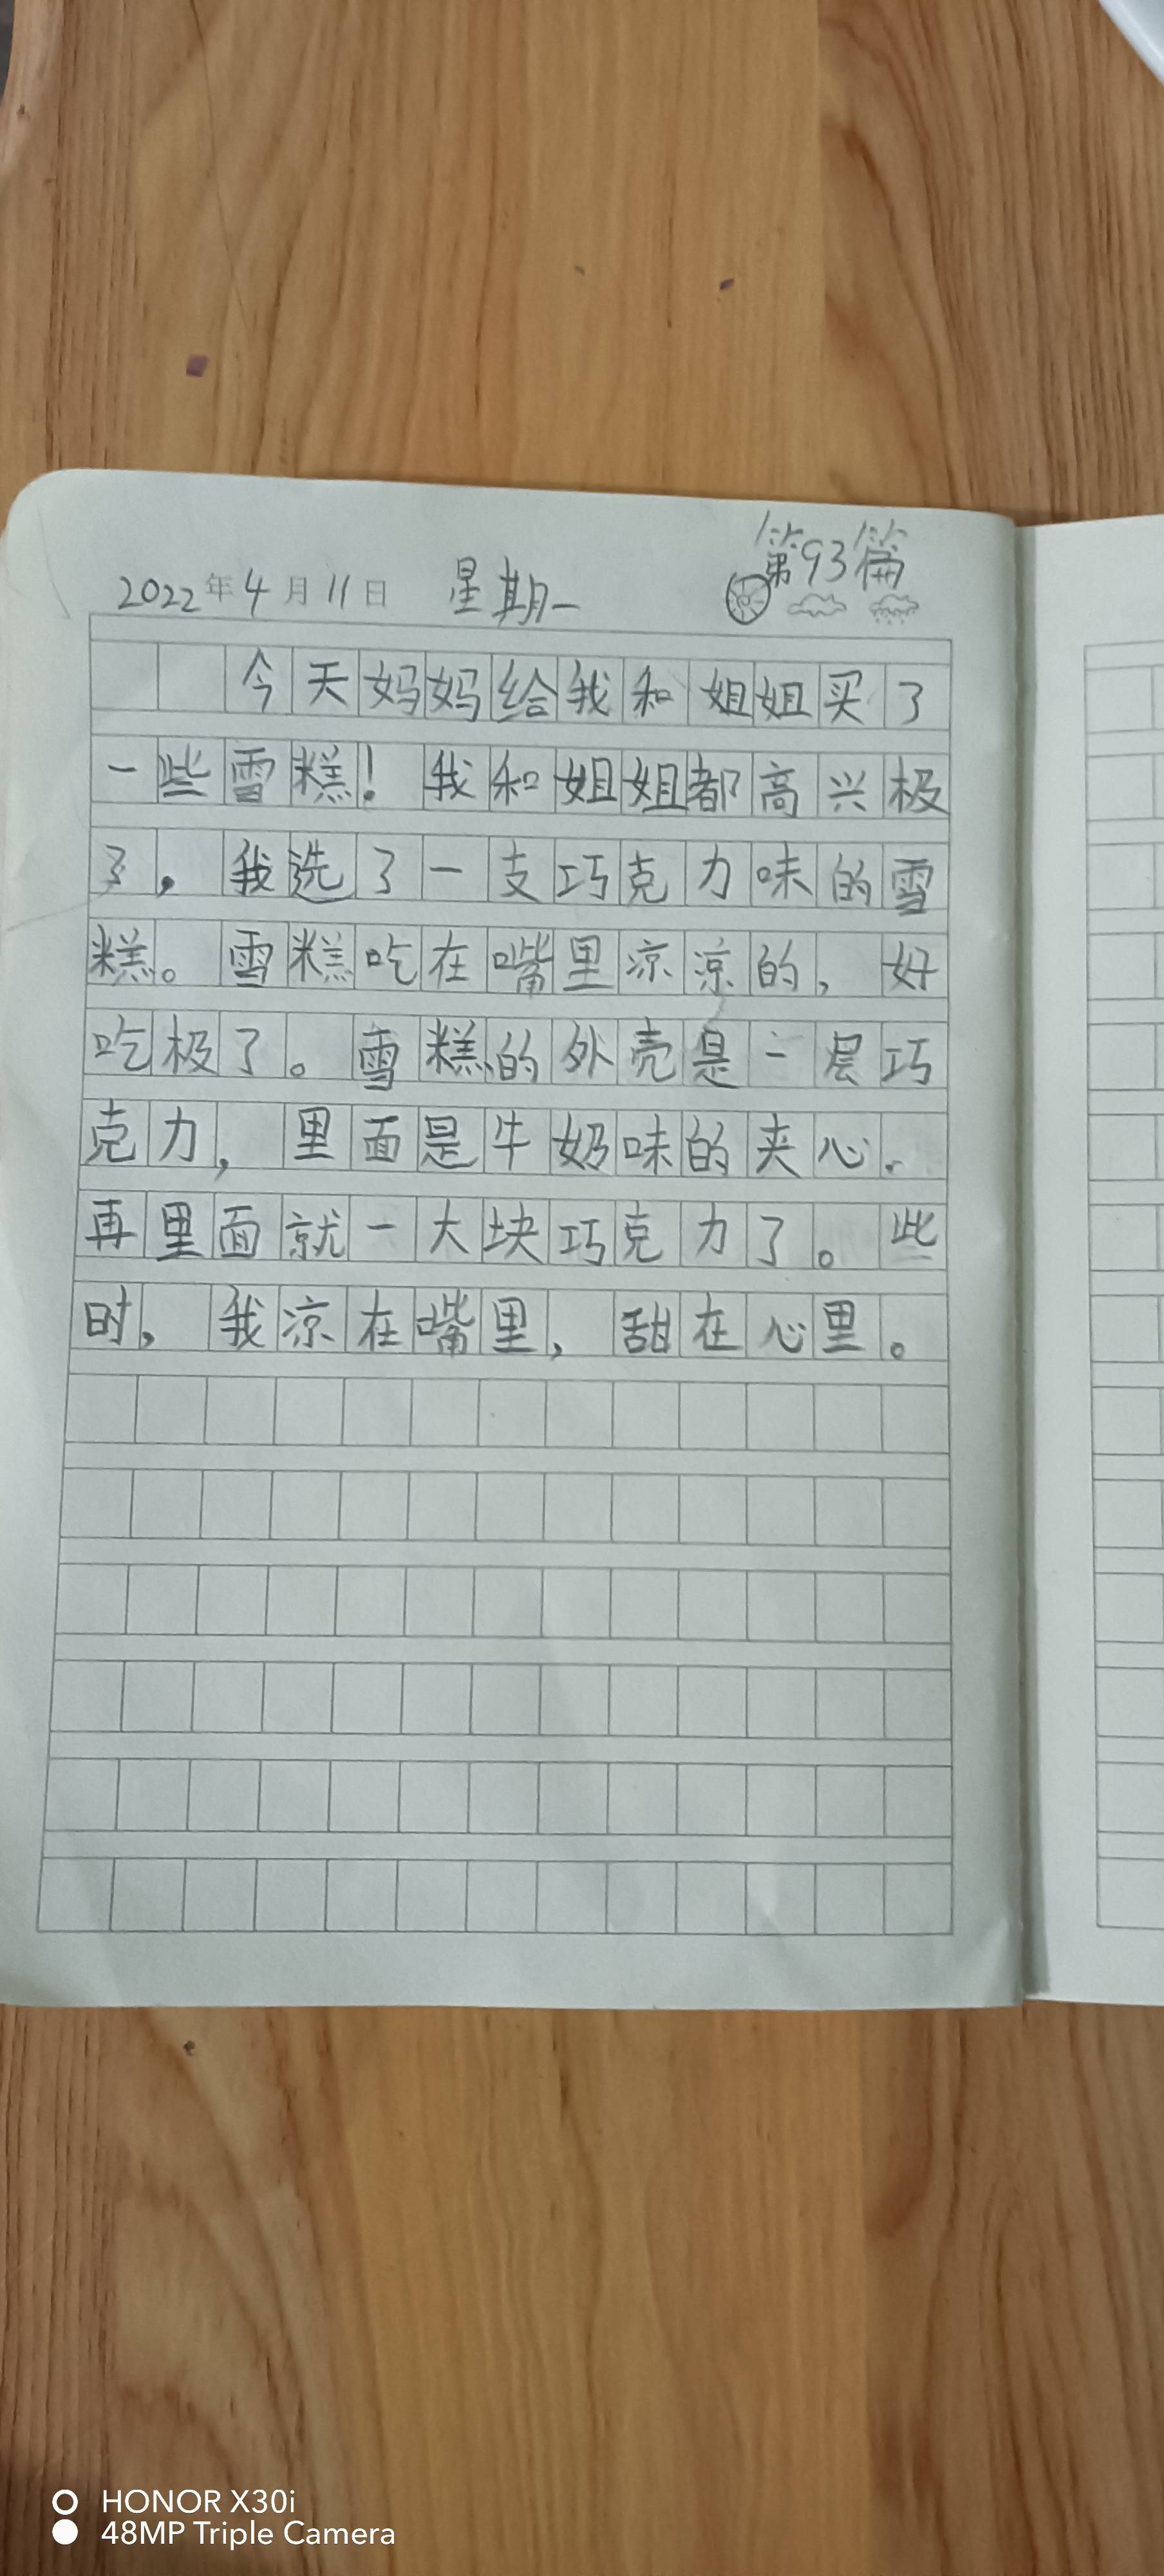 第93篇
2022年4月11日 星期一
今天妈妈给我和姐姐买了
一些雪糕！我和姐姐都高兴极
了，我选了一支巧克力味的雪
糕。雪糕吃在嘴里凉凉的，好
吃极了。雪糕的外壳是一层巧
克力，里面是牛奶味的夹心.
再里面就一大块巧克力了。些
时，我凉在嘴里，甜在心里。
HONOR X30i
48MP Triple Camera